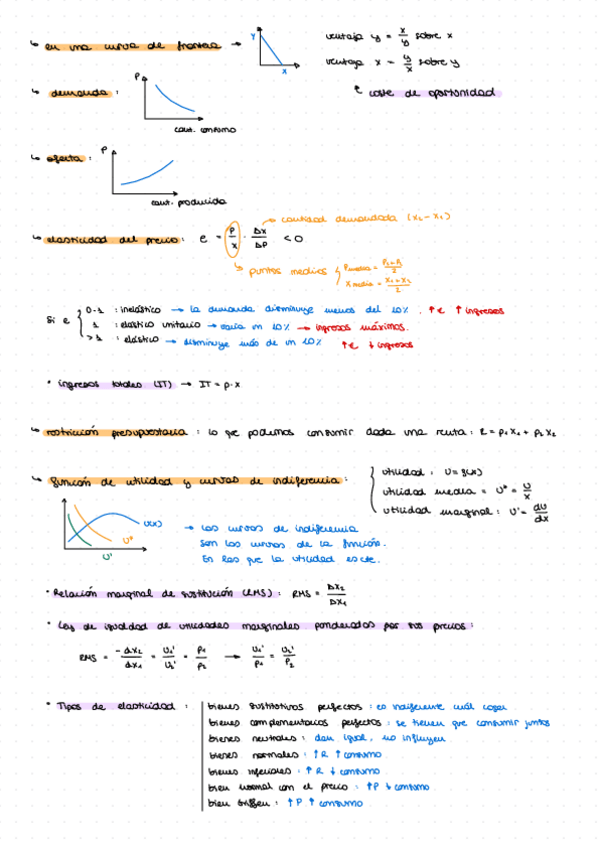 ↳ en una curva de frontera →
Y
X
ventaja y = x/y sobre x
ventaja x = y/x sobre y
↑ coste de oportunidad
↳ demanda :
P
cant. consumo
↳ oferta :
P
cant. producida
↳ elasticidad del precio : e = P/x · Δx/ΔP < 0
→ cantidad demandada (x₂ - x₁)
↳ puntos medios { Pmedia = P₁+P₂/2
Xmedia = x₁+x₂/2
Si e { 0-1 : inelástico → la demanda disminuye menos del 10% . ↑e ↑ingresos
1 : elástico unitario → varía un 10% → ingresos máximos.
>1 : elástico → disminuye más de un 10% ↑e ↓ingresos
• ingresos totales (IT) → IT = p·x
↳ restricción presupuestaria : lo que podemos consumir dada una renta : R = p₁x₁ + p₂x₂
↳ función de utilidad y curvas de indiferencia :
utilidad : U = f(x)
utilidad media = U* = U/x
utilidad marginal : U' = dU/dx
U(x)
U*
U'
→ Las curvas de indiferencia
son las curvas de la función.
En las que la utilidad es cte.
• Relación marginal de sustitución (RMS) : RMS = Δx₂/Δx₁
• Ley de igualdad de utilidades marginales ponderadas por sus precios :
RMS = -dx₂/dx₁ = U₁'/U₂' = p₁/p₂ → U₁'/p₁ = U₂'/p₂
• Tipos de elasticidad :
bienes sustitutivos perfectos : es indiferente cuál coger
bienes complementarios perfectos : se tienen que consumir juntos
bienes neutrales : dan igual, no influyen
bienes normales : ↑R ↑consumo
bienes inferiores : ↑R ↓consumo
bien normal con el precio : ↑P ↓consumo
bien Giffen : ↑P ↑consumo